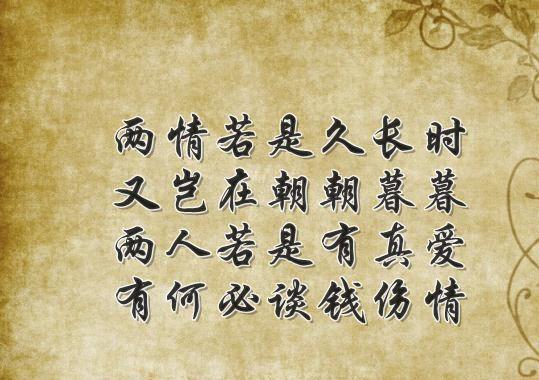 两情若是久长时
又岂在朝朝暮暮
两人若是有真爱
有何必谈钱伤情